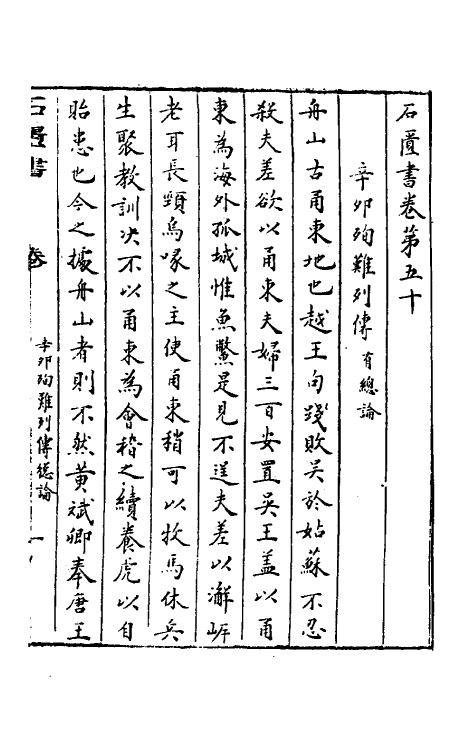 石匱書卷第五十
辛卯殉難列傳 有總論
舟山古甬東地也越王句踐敗吳於姑蘇不忍
殺夫差欲以甬東夫婦三百安置吳王盖以甬
東為海外孤城惟魚鱉是見不逞夫差以澥岓
老耳長頸烏喙之主使甬東稍可以牧馬休兵
生聚教訓决不以甬東為會稽之續養虎以自
貽患也今之據舟山者則不然黃斌卿奉唐王
石匱書 卷 辛卯殉難列傳總論 一